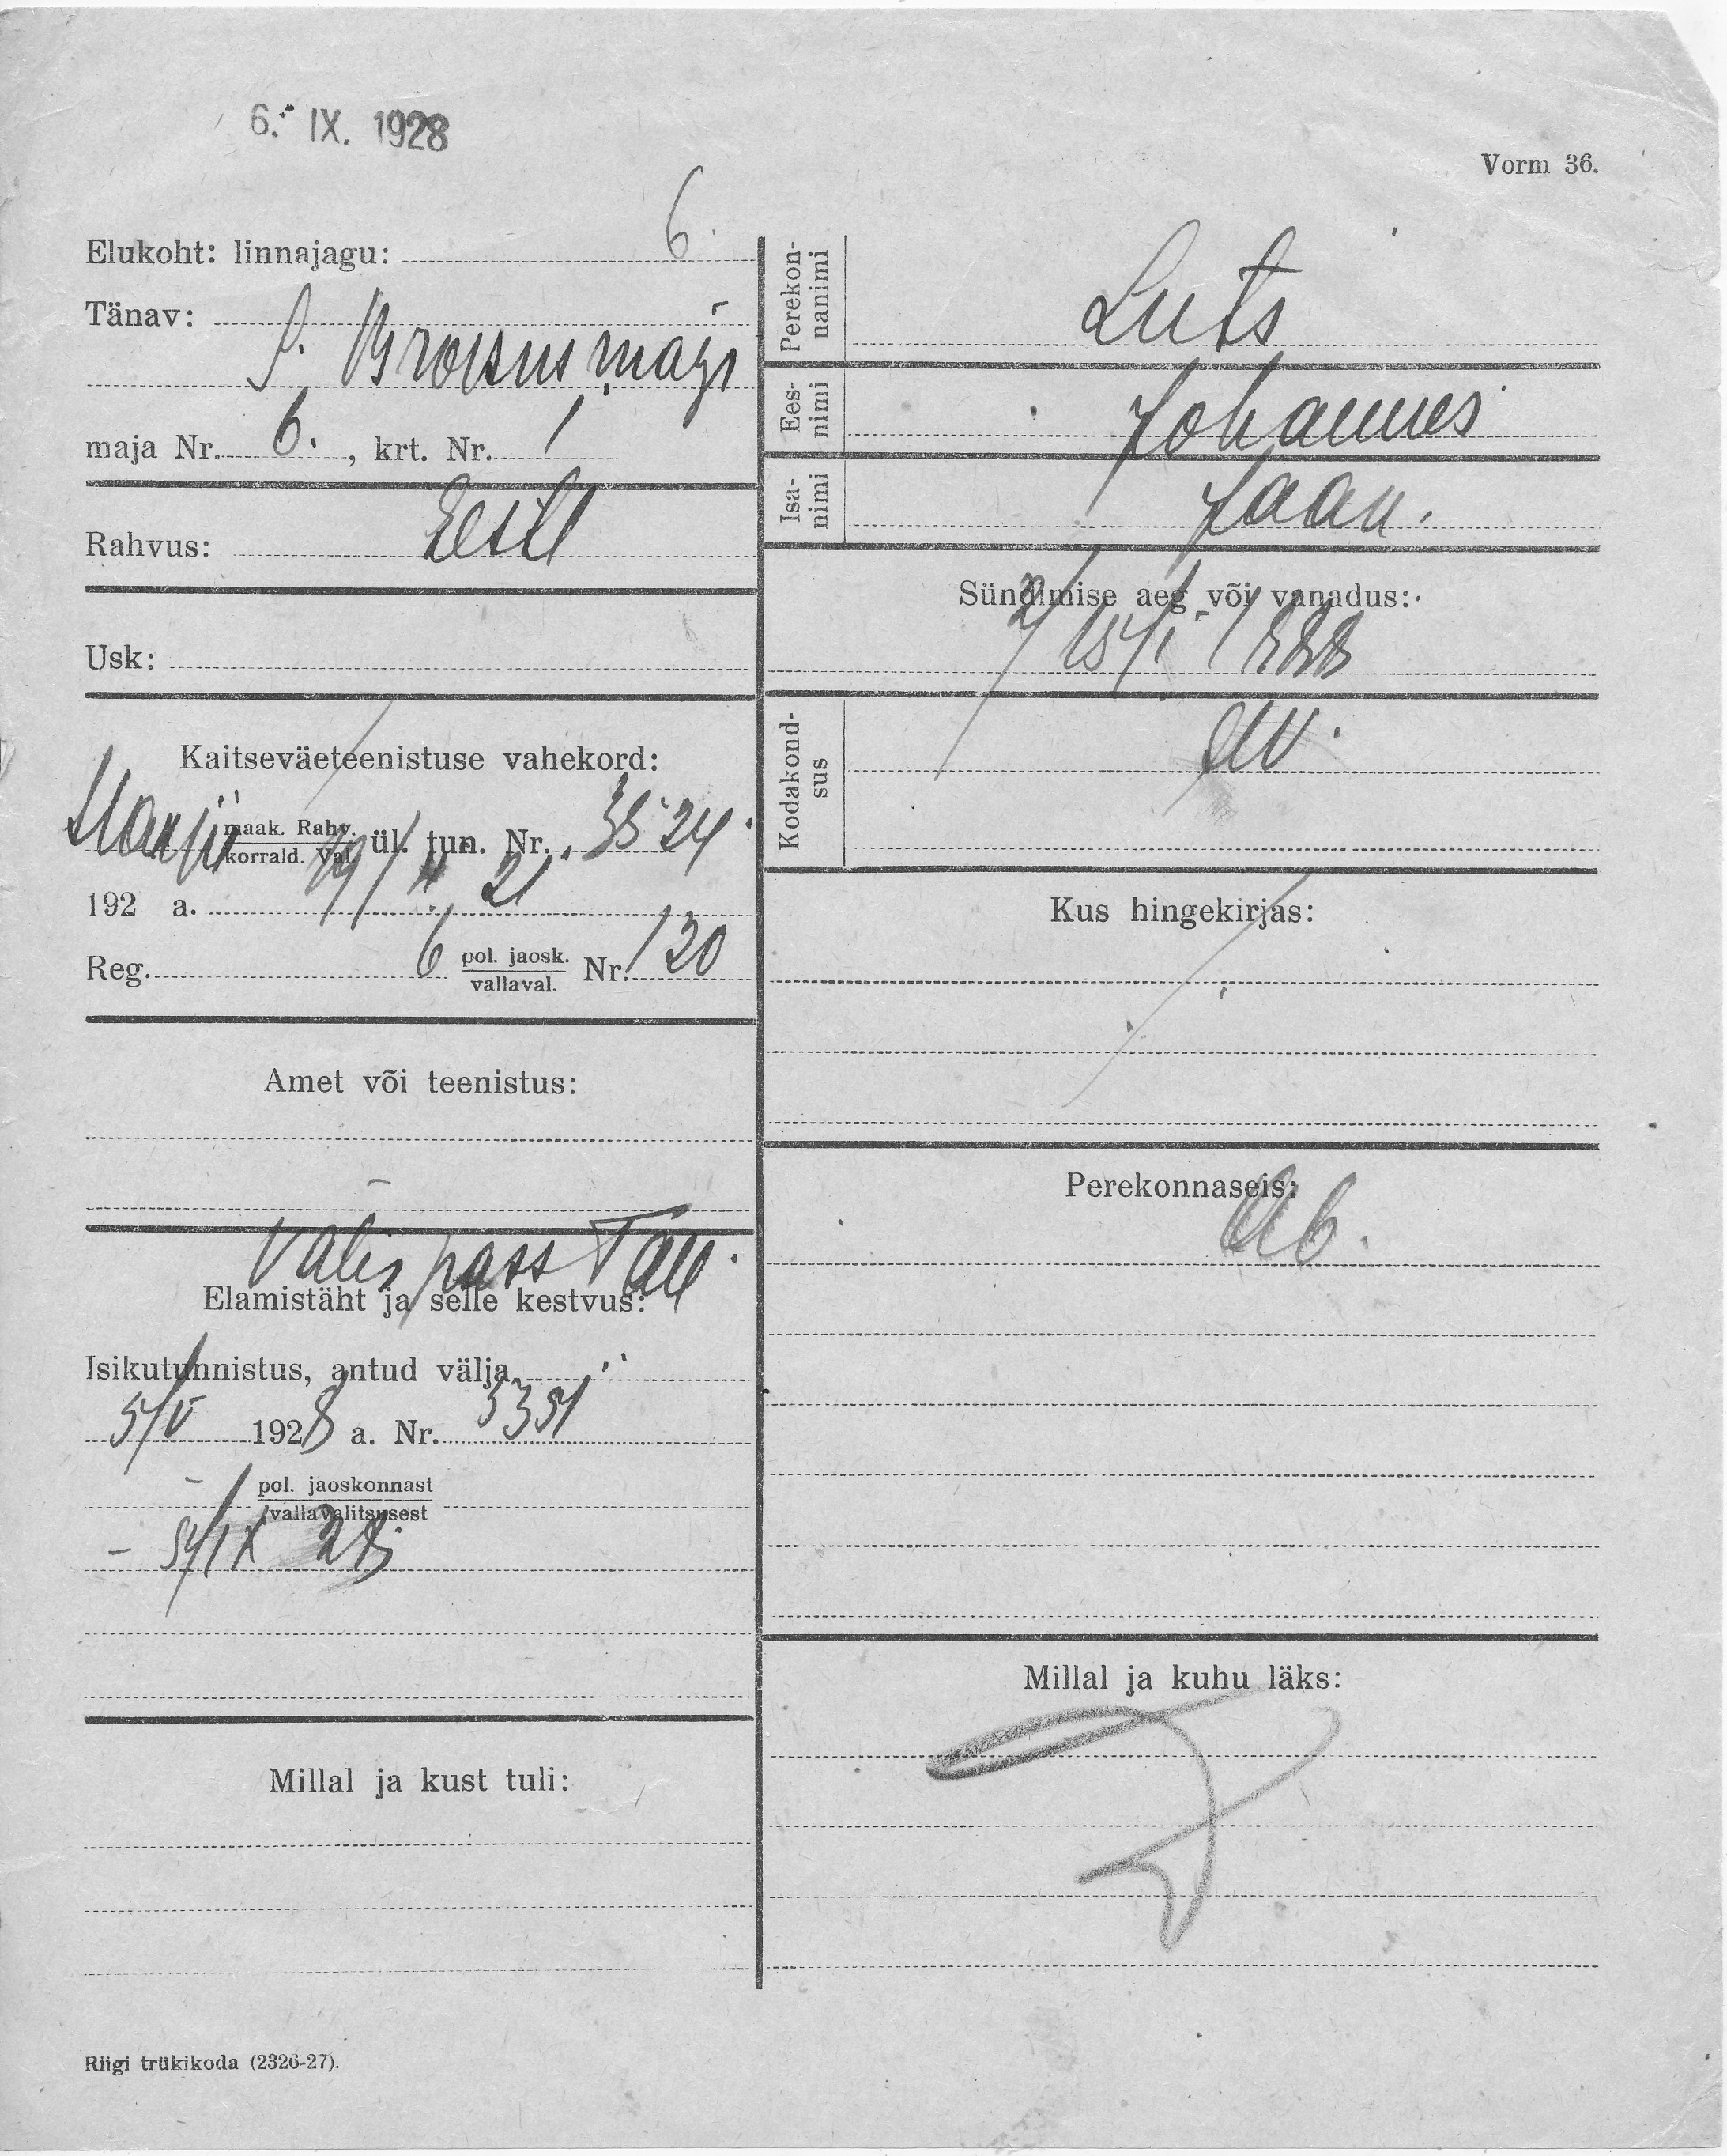 6. IX. 1928
Vorm 36.
Elukoht: linnajagu: 6.
Tänav:
maja Nr. 6., krt. Nr. 1
Rahvus: Eesti
Usk:
Kaitseväeteenistuse vahekord:
Harju maak. Rahv. korrald. Val. ül. tun. Nr. 3524
192 a. 19/II 21
Reg. 6 pol. jaosk. vallaval. Nr. 130
Amet või teenistus:
Välispass Tall.
Elamistäht ja selle kestvus:
Isikutunnistus, antud välja
5/V 1928 a. Nr. 5351
pol. jaoskonnast
vallavalitsusest
– 5/IX 28
Millal ja kust tuli:
Riigi trükikoda (2326-27).
Perekonnanimi Luts
Eesnimi Johannes
Isanimi Jaan.
Sündimise aeg või vanadus:
1888
Kodakondsus
Kus hingekirjas:
Perekonnaseis:
Ab.
Millal ja kuhu läks: